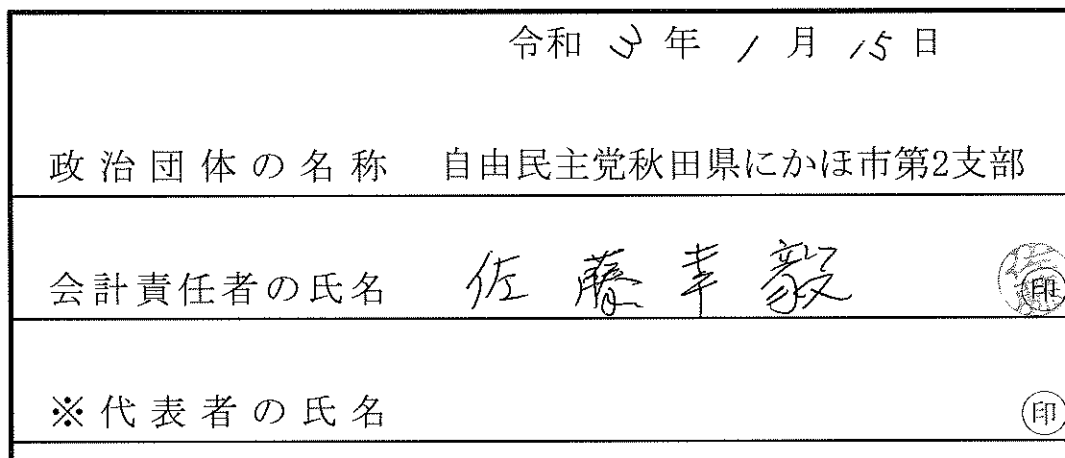 令和 3 年 1 月 15 日
政治団体の名称 自由民主党秋田県にかほ市第2支部
会計責任者の氏名 佐藤幸毅 印
※代表者の氏名 印